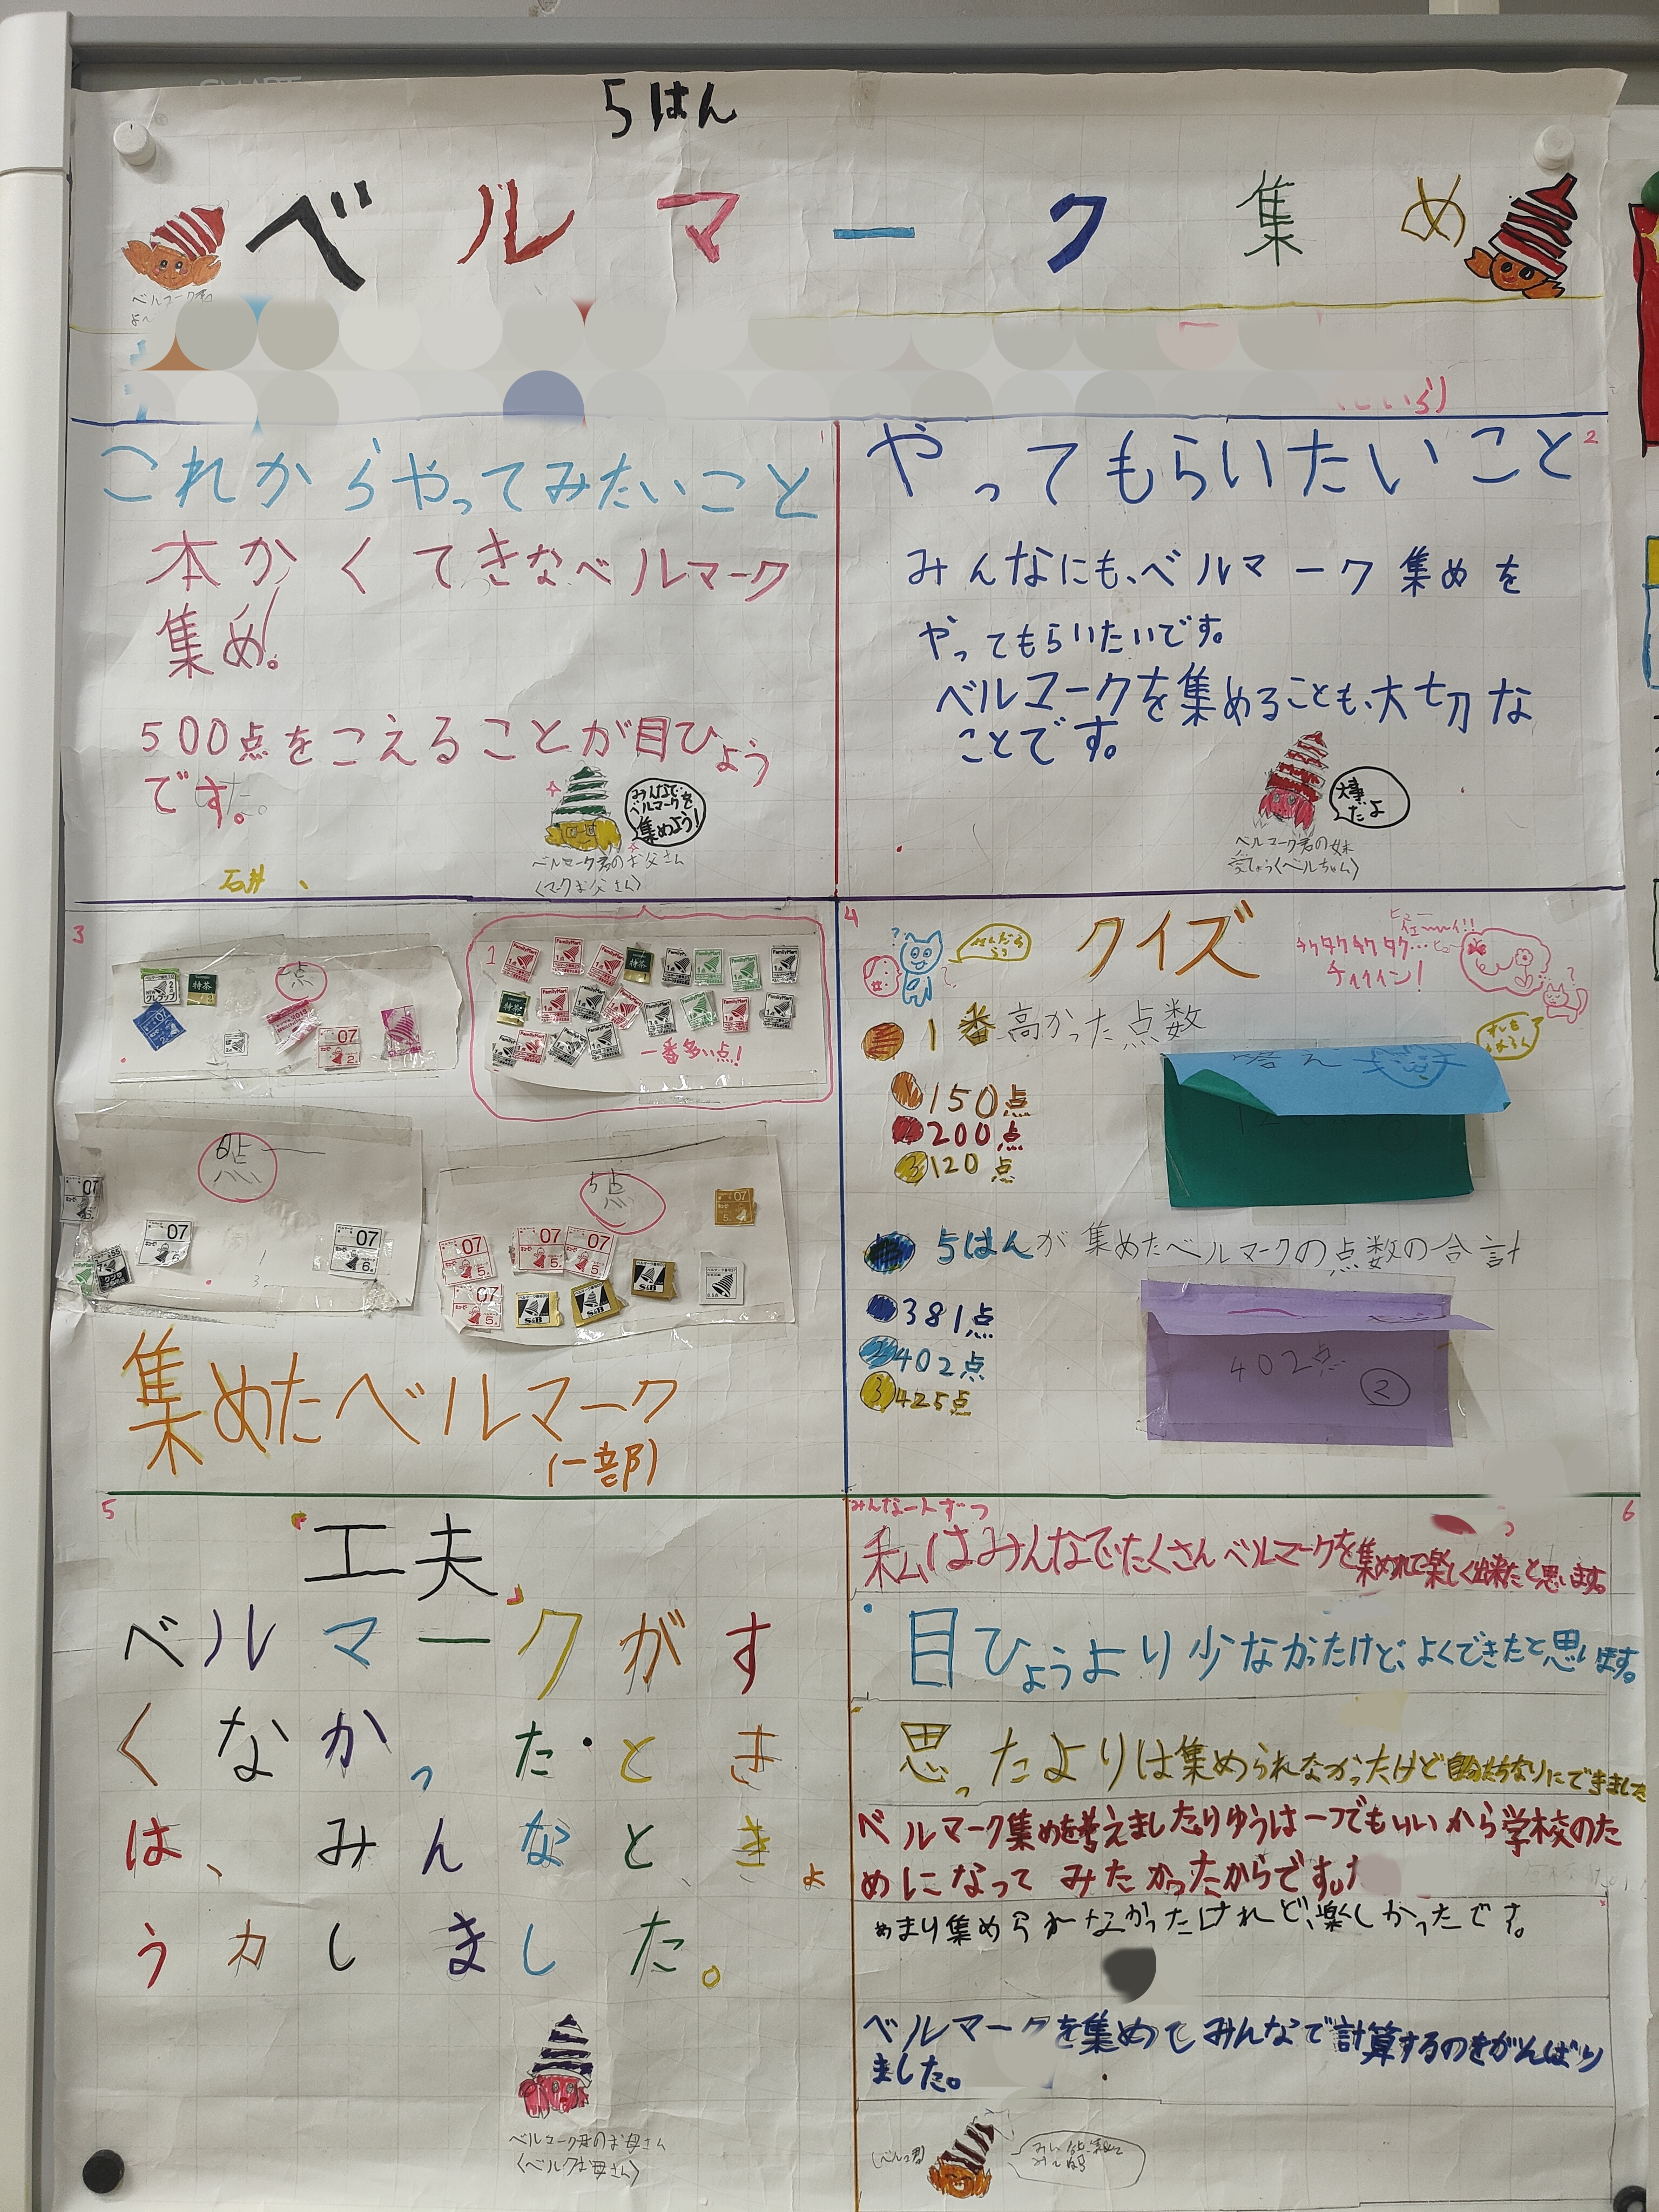 5はん
ベルマーク集め
ベルマーク君
1
これからやってみたいこと
本かくてきなベルマーク
集め。
500点をこえることが目ひょう
です。
みんなで
ベルマークを
集めよう!
ベルマーク君のお父さん
〈マークお父さん〉
石井
2
やってもらいたいこと
みんなにも、ベルマーク集めを
やってもらいたいです。
ベルマークを集めることも、大切な
ことです。
大事
だよ
ベルマーク君の妹
愛しょう〈ベルちゃん〉
3
2点
1
FamilyMart
特茶
一番多い点!
6点
07
6.
5点
07
5.
S&B
集めたベルマーク
(一部)
4
クイズ
チクタクチクタク…
チィィイン!
1番高かった点数
150点
200点
③120点
答え
5はんが集めたベルマークの点数の合計
381点
②402点
③425点
402点
②
5
『工夫』
ベルマークがす
くなかったとき
は、みんなときょ
うカしました。
ベルマーク君のお母さん
〈ベルクお母さん〉
6
みんな一人ずつ
私はみんなでたくさんベルマークを集めれて楽しく出来たと思います。
目ひょうより少なかったけど、よくできたと思います。
思ったよりは集められなかったけど自分たちなりにできました
ベルマーク集めを考えましたりゆうは一つでもいいから学校のた
めになってみたかったからです。
あまり集められなかったけれど、楽しかったです。
ベルマークを集めてみんなで計算するのをがんばり
ました。